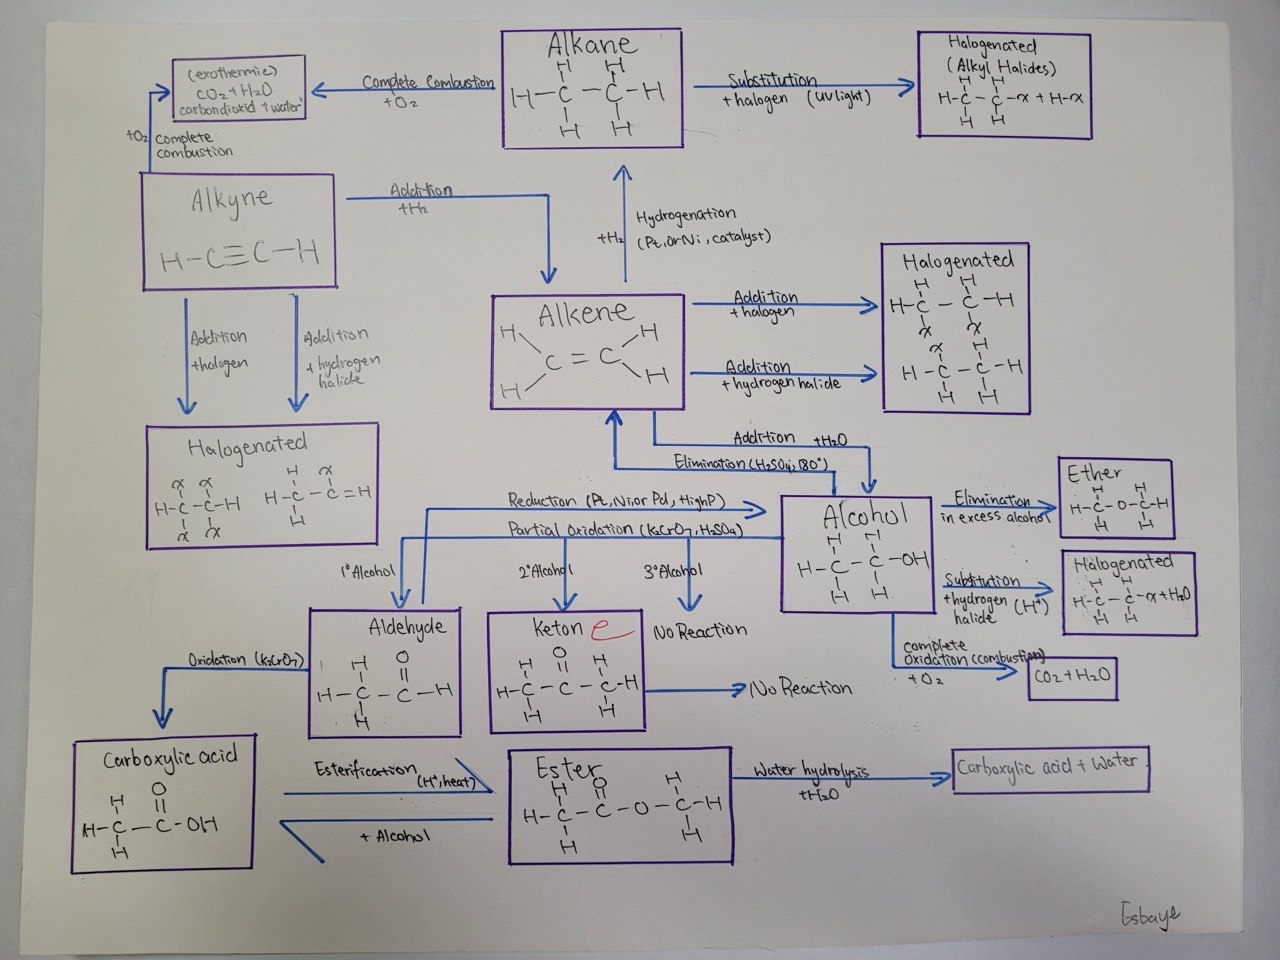 Alkane
H H
H-C-C-H
H H
Complete Combustion
+O2
(exothermic)
CO2+H2O
carbondioxid + water
Substitution
+halogen (UV light)
Halogenated
(Alkyl Halides)
H H
H-C-C-x + H-x
H H
+O2 complete
combustion
Alkyne
H-C≡C-H
Addition
+H2
+H2
Hydrogenation
(Pt, or Ni, catalyst)
Alkene
H H
C=C
H H
Addition
+halogen
Addition
+hydrogen halide
Halogenated
H H
H-C-C-H
x x
x H
H-C-C-H
H H
Addition
+halogen
Addition
+hydrogen
halide
Halogenated
x x
H-C-C-H
x x
H x
H-C-C=H
H
Addition +H2O
Elimination (H2SO4, 180°)
Alcohol
H H
H-C-C-OH
H H
Elimination
in excess alcohol
Ether
H H
H-C-O-C-H
H H
Substitution
+hydrogen (H+)
halide
Halogenated
H H
H-C-C-x+H2O
H H
complete
oxidation (combustion)
+O2
CO2+H2O
Reduction (Pt, Ni, or Pd, +High P)
Partial Oxidation (K2CrO7, H2SO4)
1° Alcohol
2° Alcohol
3° Alcohol
No Reaction
Aldehyde
H O
H-C-C-H
H
Ketone
H O H
H-C-C-C-H
H H
No Reaction
Oxidation (K2CrO7)
Carboxylic acid
H O
H-C-C-OH
H
Esterification (H+, heat)
+ Alcohol
Ester
H O H
H-C-C-O-C-H
H H
Water hydrolysis
+H2O
Carboxylic acid + Water
Esbaye